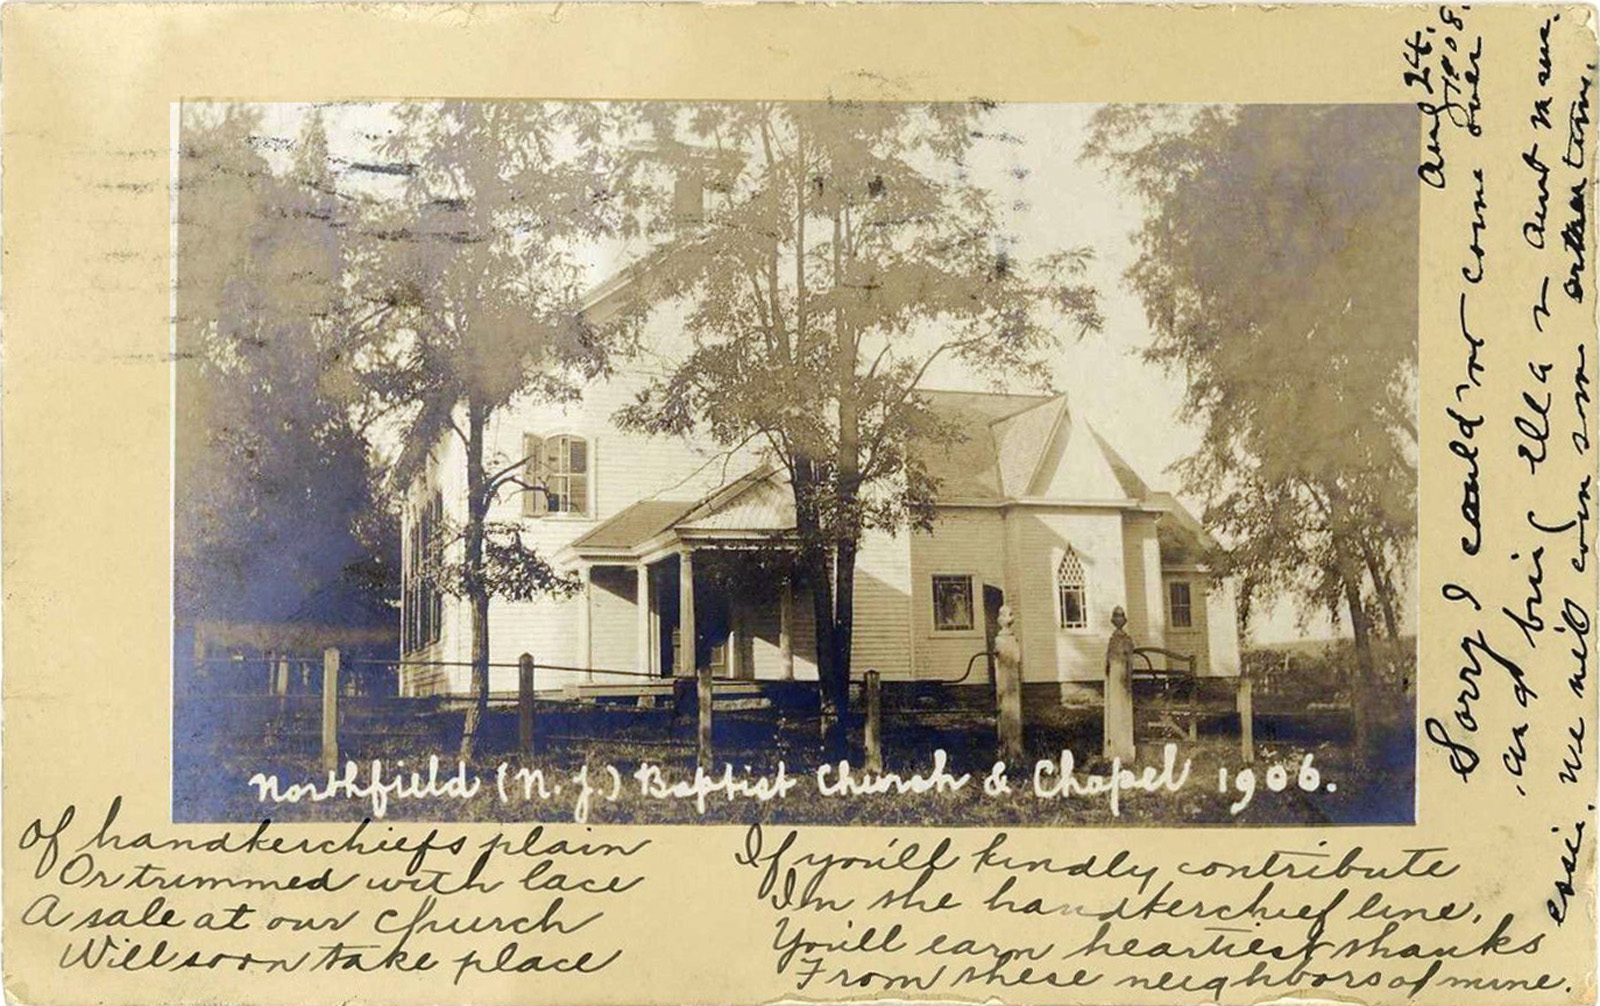 Northfield (N. J.) Baptist Church & Chapel 1906.
Of handkerchiefs plain
Or trimmed with lace
A sale at our church
Will soon take place
If you'll kindly contribute
In the handkerchief line,
You'll earn heartiest thanks
From these neighbors of mine.
Aug 24,
1908.
Sorry I could'nt come over
and bring Ella & Aunt
we will come some other time.